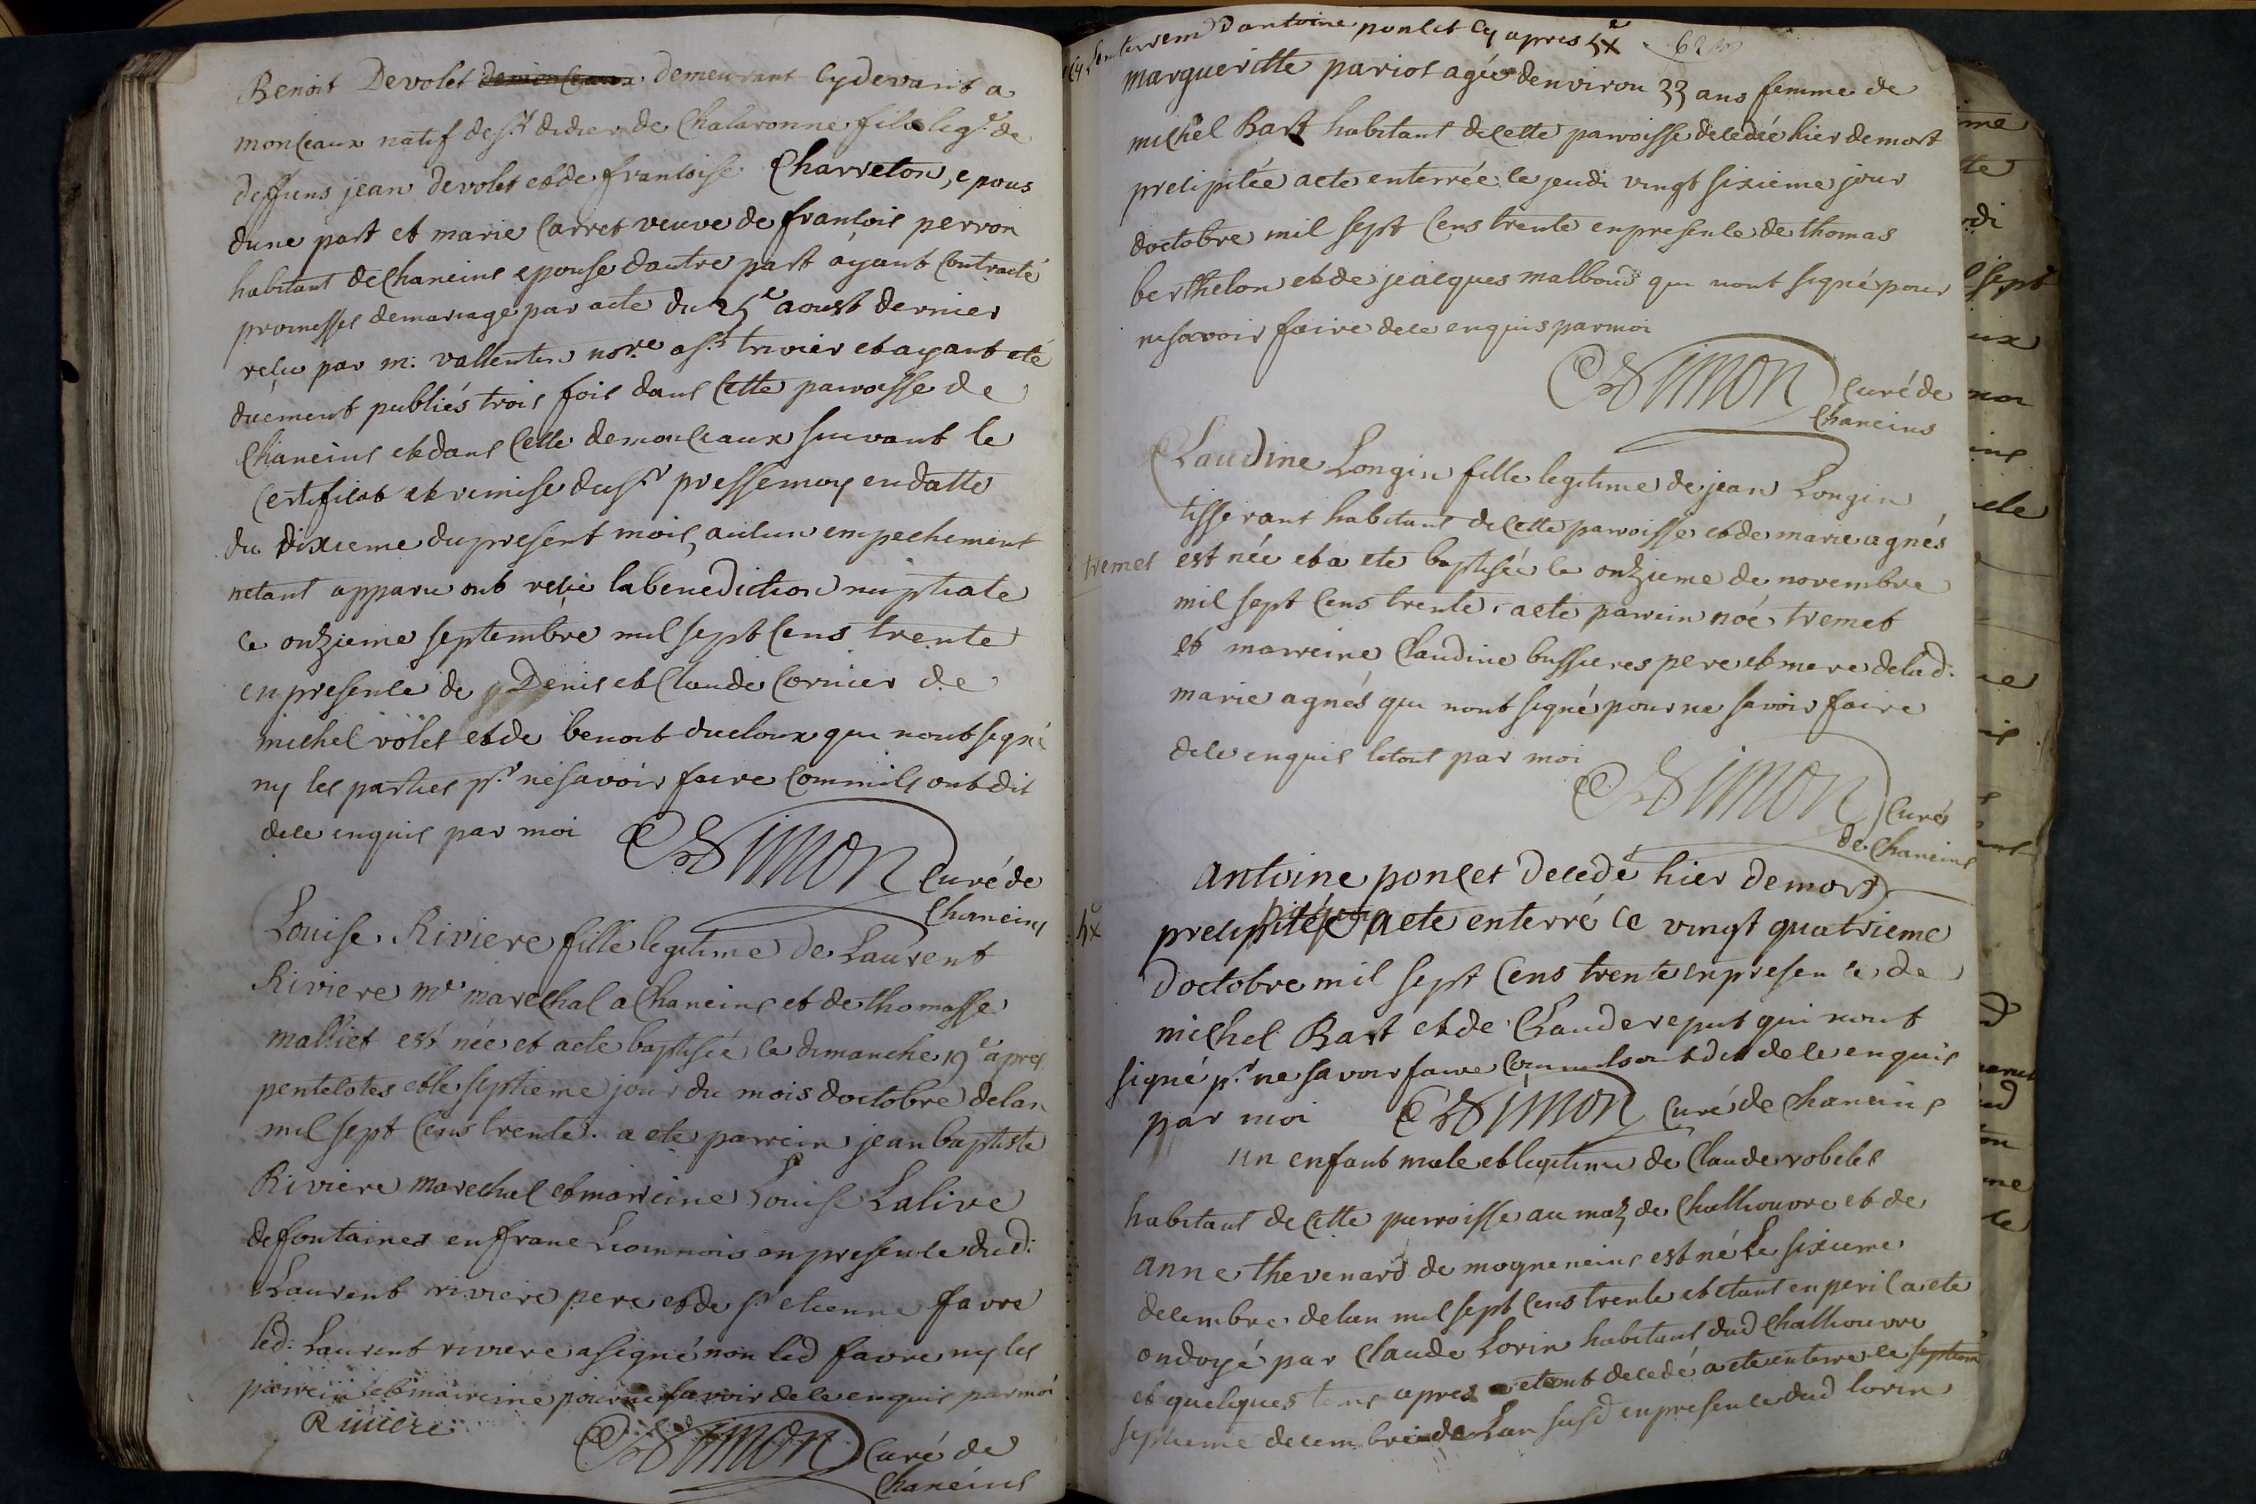 Benoit Devolet demeurant cydevant a
monceaux natif de st didier de Chalaronne fils leg.e de
deffuns jean devolet et de francoise Charreton, epous
dune part et marie Carret veuve de francois perron
habitant de Chaneins epouse dautre part ayant contracté
promesses de mariage par acte du 25e aoust dernier
recu par m. vallentin nore a st trivier et ayant eté
duement publiés trois fois dans Cette paroisse de
Chaneins et dans Celle de monceaux suivant le
Certificat et remise du sr pressemoy en datte
du dixieme du present mois, aucun empechement
netant apparu ont recu la benediction nuptiale
ce onzieme septembre mil sept Cens trente
en presence de Denis et Claude Cornier de
michel volet et de benoit ducloux qui nont signé
ny les parties pr ne savoir faire Comme ils ont dit
de ce enquis par moi
Simon Curé de
Chaneins
Louise Riviere fille legitime de Laurent
Riviere me marechal a Chaneins et de thomasse
malliet est née et a ete baptisée le dimanche 19e apres
pentecotes et le septieme jour du mois doctobre de lan
mil sept Cens trente. a ete parrein jean baptiste
Riviere marechal et marreine Louise Lalive
de fontaines en franc Lionnois en presence dud:
Laurent riviere pere et de sr etienne favre
led: Laurent riviere a signé non led favre ny les
parrein et marreine pour ne savoir de ce enquis par moi
Riviere
Simon Curé de
Chaneins
Lenterrem dantoine poncet cy apres
margueritte pariot agée denviron 33 ans femme de
michel Bart habitant de cette paroisse decedée hier de mort
precipitée a ete enterrée le jeudi vingt sixieme jour
doctobre mil sept Cens trente en presence de thomas
berthelon et de jeacques malboud qui nont signé pour
ne savoir faire de ce enquis par moi
Simon Curé de
Chaneins
Claudine Longin fille legitime de jean Longin
tisserant habitant de Cette paroisse et de marie agnés
tremet est née et a ete baptisée le onzieme de novembre
mil sept Cens trente, a ete parrein noé tremet
et marreine Claudine bussieres pere et mere de lad:
marie agnés qui nont signé pour ne savoir faire
de ce enquis le tout par moi
Simon Curé
de Chaneins
Antoine poncet decedé hier de mort
precipitée a ete enterré ce vingt quatrieme
doctobre mil sept Cens trente en presence de
michel Bart et de Claude reput qui nont
signé pr ne savoir faire Comme ils ont dit de ce enquis
par moi Simon Curé de Chaneins
un enfant male et legitime de Claude robelet
habitant de Cette parroisse au maz de Challiouvre et de
anne thevenard de mogneneins est né Le sixieme
decembre de lan mil sept Cens trente et etant en peril a ete
ondoyé par Claude Lorin habitant dud Challiouvre
et quelques tems apres etant decedé a ete enterré le septiem
septieme decembre de Lan susd en presence dud lorin